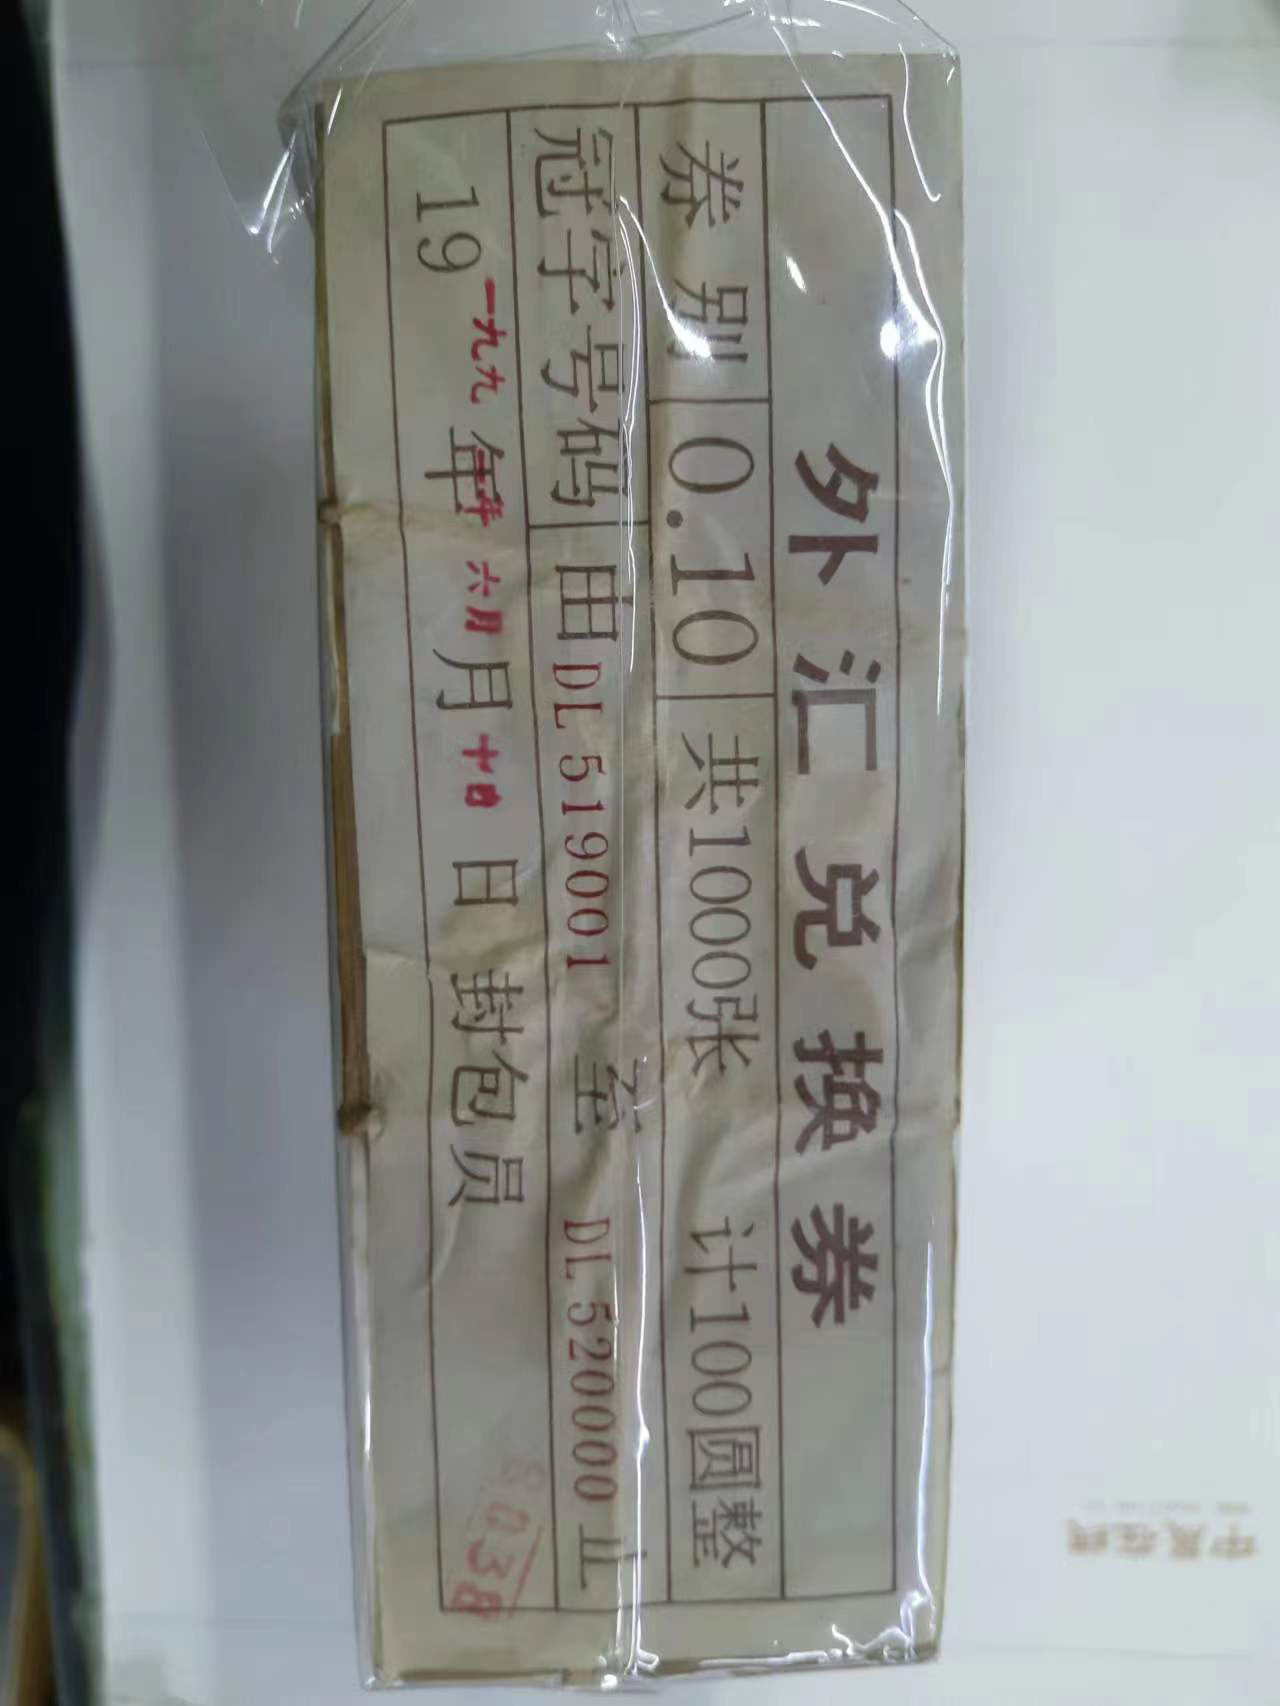 外汇兑换券
券别 0.10 共1000张 计100圆整
冠字号码 由 DL 519001 至 DL 520000 止
19 一九九 年 六月 月 十日 日 封包员
8038